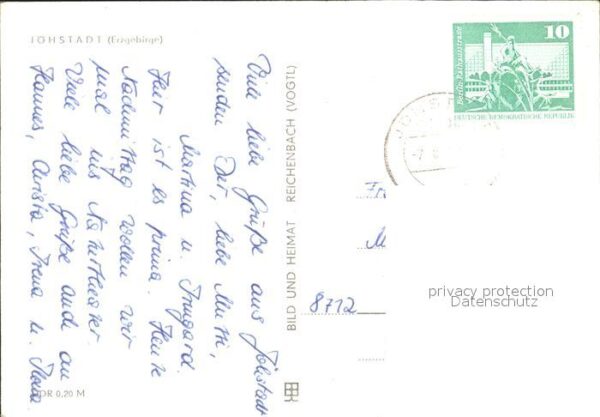 JÖHSTADT (Erzgebirge)
Viele liebe Grüße aus Jöhstadt
senden Dir, liebe Mutti,
Martina u. Irmgard.
Hier ist es prima. Heute
Nachmittag wollen wir
mal ins Naturtheater.
Viele liebe Grüße auch an
Hannes, Christa, Irena u.
DDR 0,20 M
BILD UND HEIMAT REICHENBACH (VOGTL)
10
Berlin, Rathausstraße
DEUTSCHE DEMOKRATISCHE REPUBLIK
Fr
M
8712
privacy protection
Datenschutz